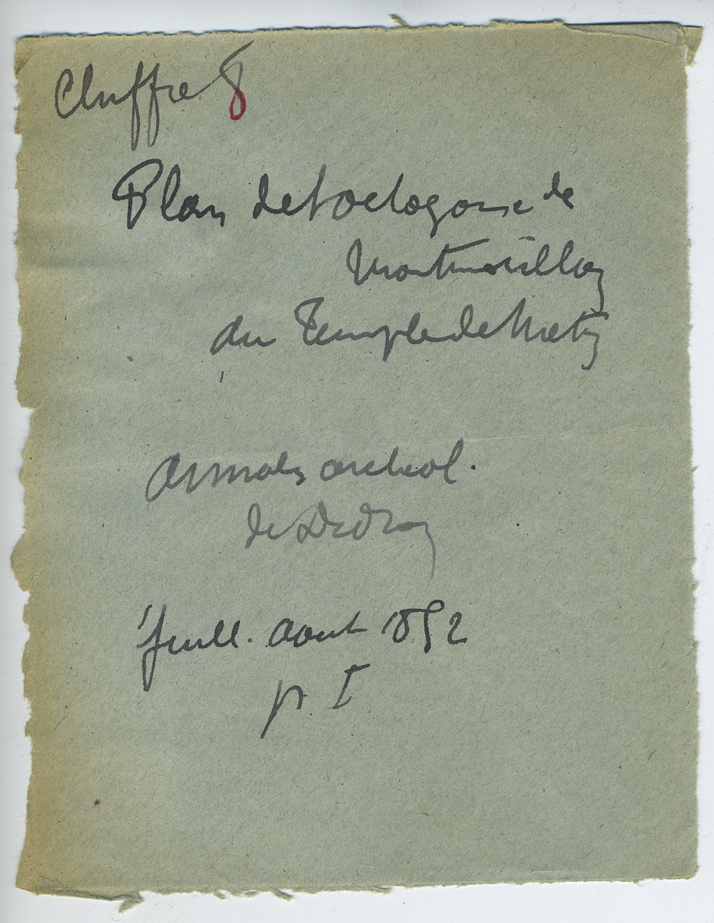 Chiffre 8
Plan de l'octogone de
Montmorillon
du Temple de Metz
Annales archéol.
de Didron
Juill. aout 1852
p. I